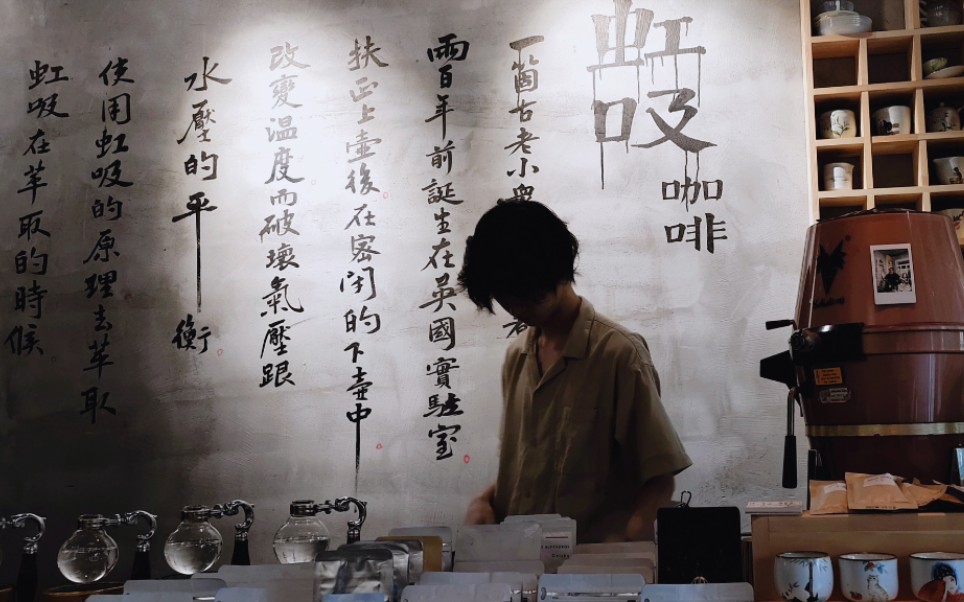 虹吸
咖啡
一箇古老小
兩百年前誕生在英國實驗室
扶正上壺後在密閉的下壺中
改變溫度而破壞氣壓跟
水壓的平衡
使用虹吸的原理去萃取
虹吸在萃取的時候